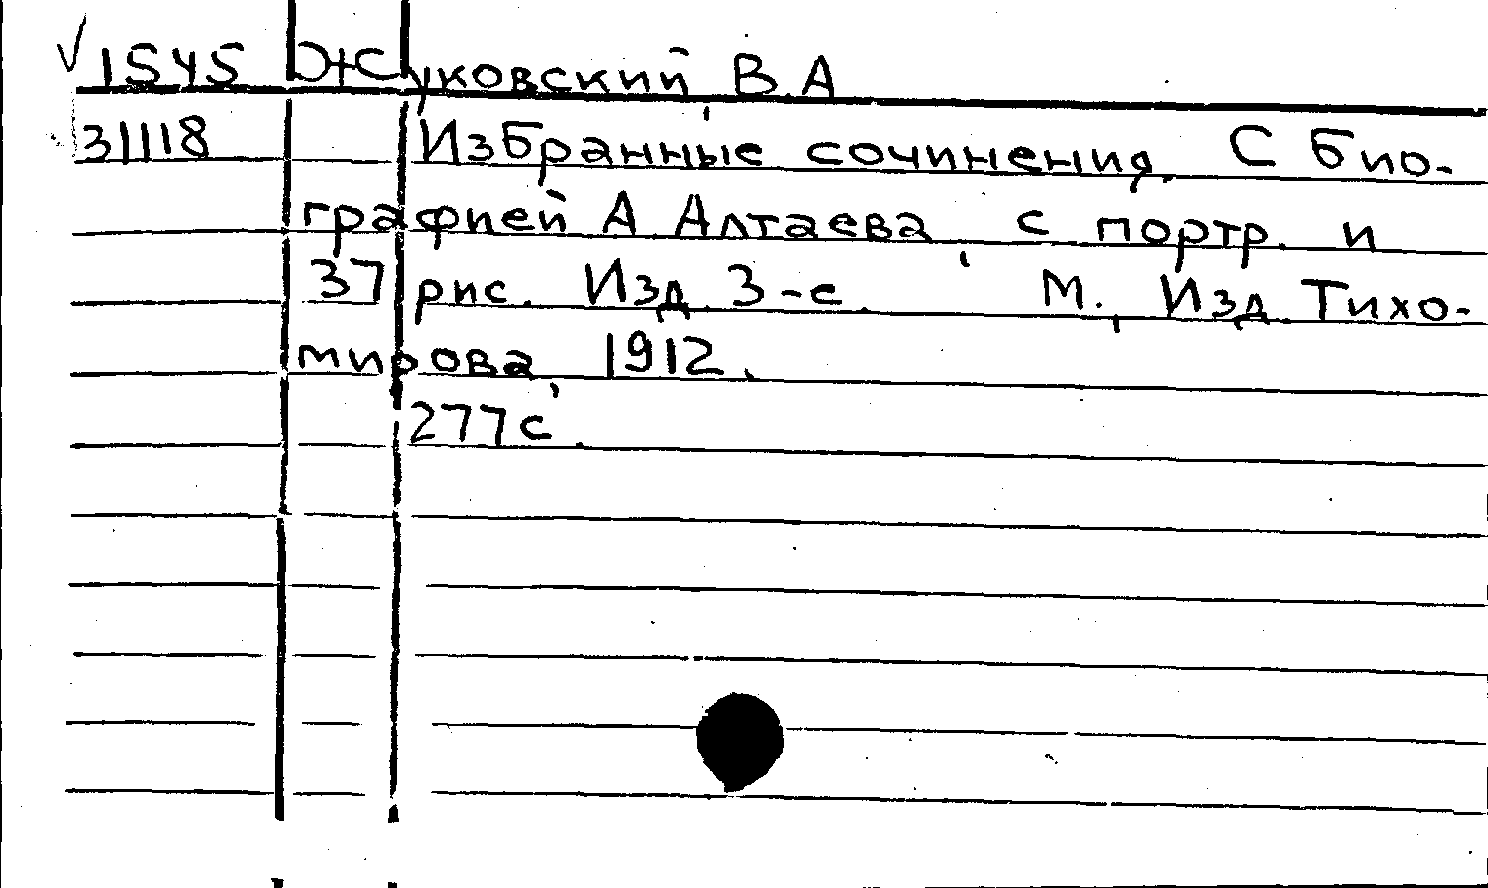 √ 1545 Жуковский, В.А
31118 Избранные сочинения. С био-
графией А. Алтаева, с портр. и
37 рис. Изд. 3-е. М., Изд. Тихо-
мирова, 1912.
277с.